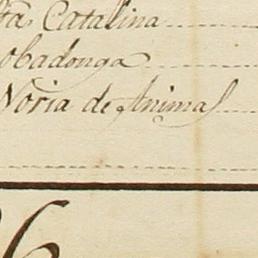 ta Catalina
obadonga
Noria de Animal